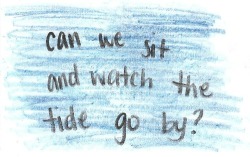 can we sit
and watch the
tide go by?